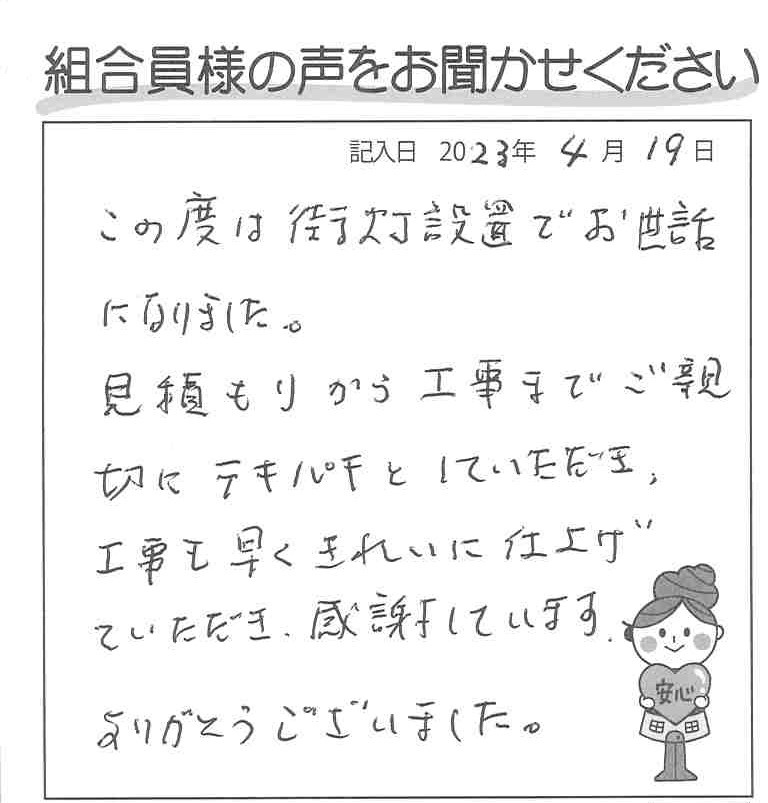 組合員様の声をお聞かせください
記入日 2023年 4月 19日
この度は街灯設置でお世話
になりました。
見積もりから工事までご親
切にテキパキとしていただき、
工事も早くきれいに仕上げ
ていただき、感謝しています。
ありがとうございました。
安心